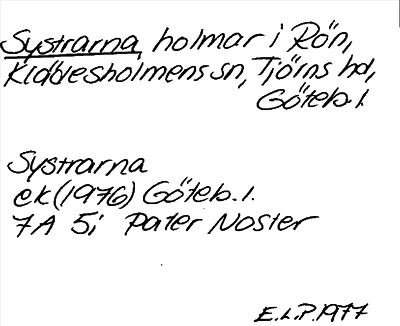 Systrarna, holmar i Rön,
Klädesholmens sn, Tjörns hd,
Göteb. l.
Systrarna
ek (1976) Göteb. l.
7A 5i Pater Noster
E.L.P. 1977